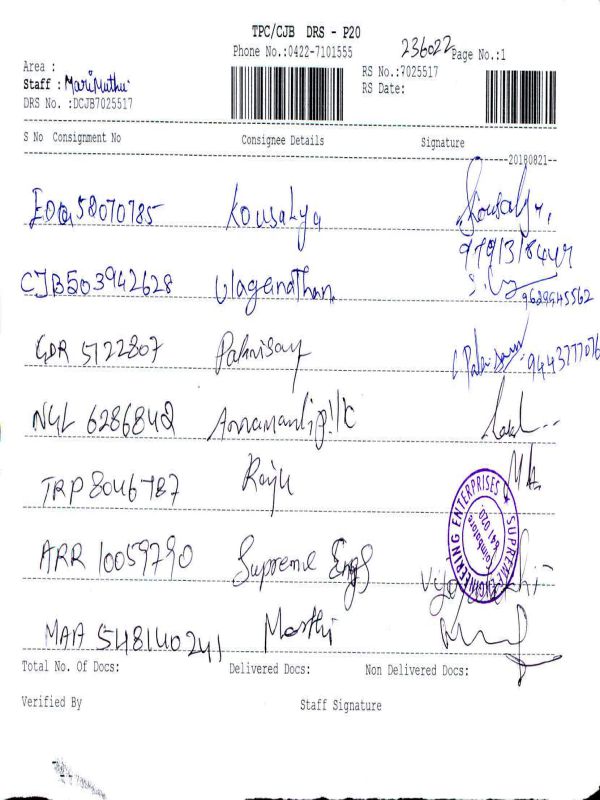 TPC/CJB DRS - P20
Phone No.:0422-7101555
236022
Page No.:1
Area :
Staff : MariMuthu
DRS No. :DCJB7025517
RS No.:7025517
RS Date:
S No Consignment No Consignee Details Signature
20180821
58070785 Kousalya Kousalya
CJB503942628 Ulaganathan
9629945562
5122807 Palanisamy
NGL 6286842
TRP 8046787 Raju
ARR 10059790 Supreme Engg
SUPREME ENGINEERING ENTERPRISES
Coimbatore
641 020.
MAA 548140241
Total No. Of Docs: Delivered Docs: Non Delivered Docs:
Verified By Staff Signature